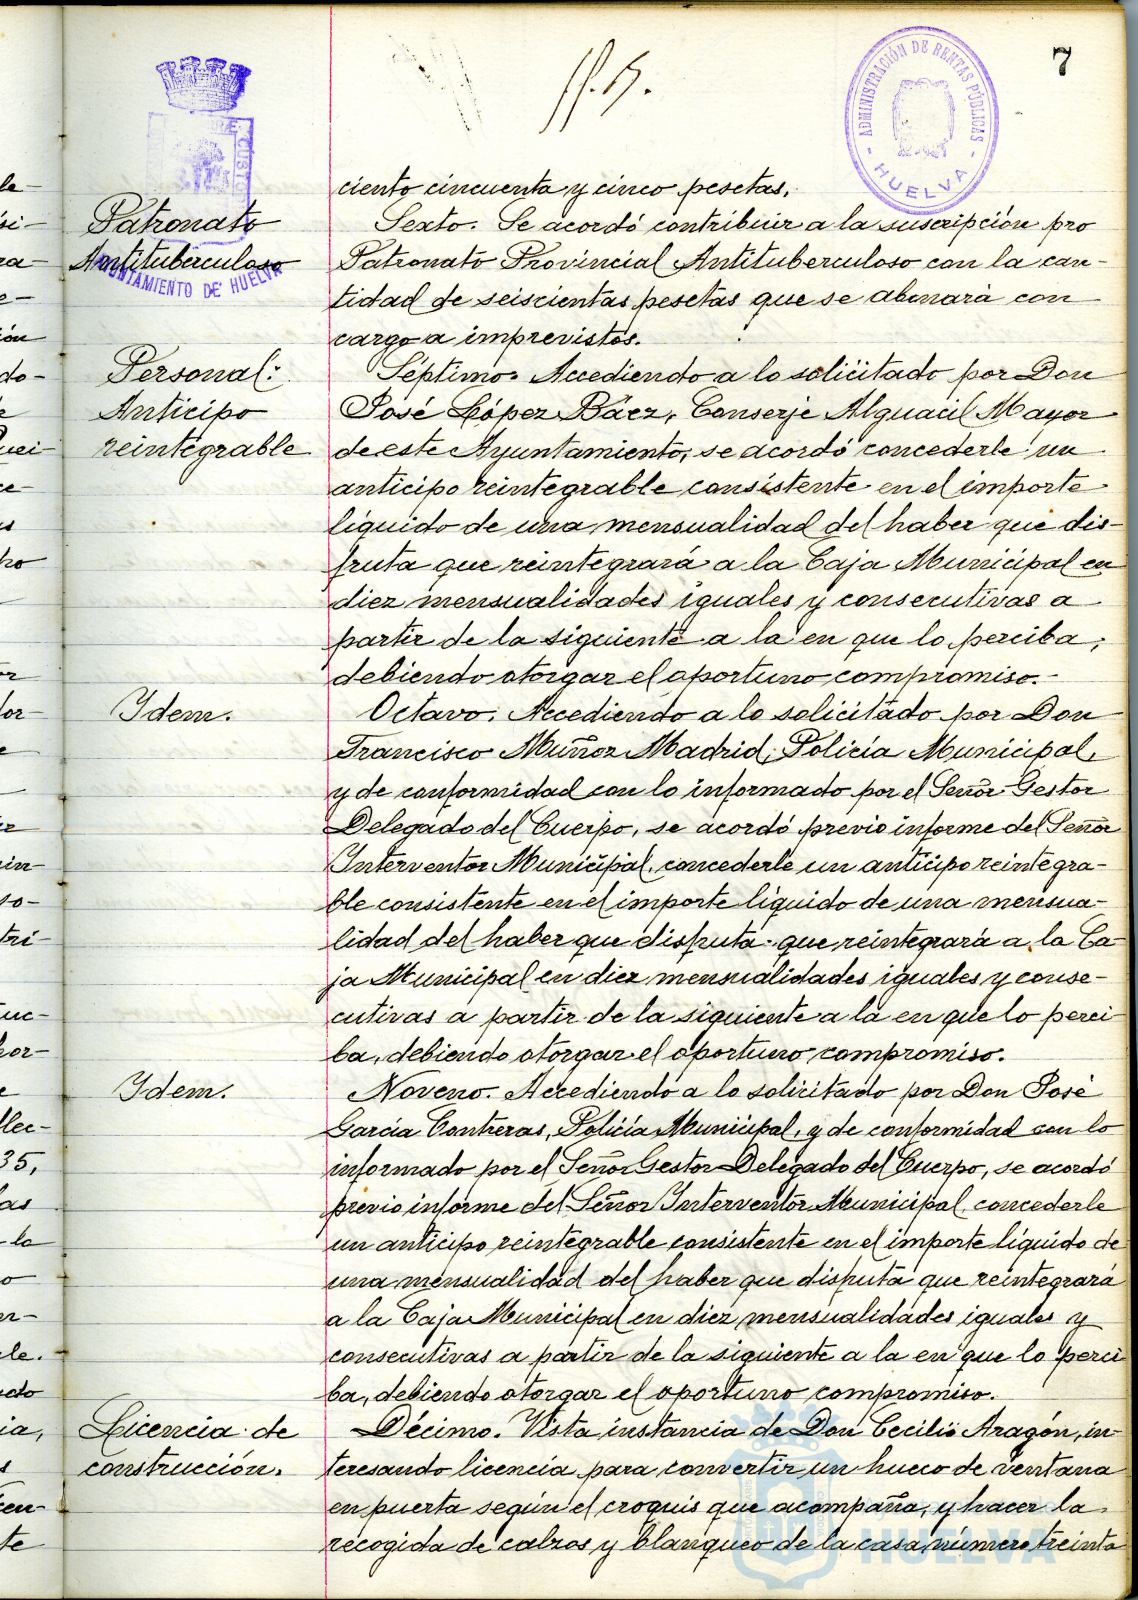 7
ADMINISTRACIÓN DE RENTAS PÚBLICAS
HUELVA
AYUNTAMIENTO DE HUELVA
ciento cincuenta y cinco pesetas.
Patronato
Antituberculoso
Sexto. Se acordó contribuir a la suscripción pro
Patronato Provincial Antituberculoso con la can-
tidad de seiscientas pesetas que se abonará con
cargo a imprevistos.
Personal:
Anticipo
reintegrable
Séptimo. Accediendo a lo solicitado por Don
José López Báez, Conserje Alguacil Mayor
de este Ayuntamiento, se acordó concederle un
anticipo reintegrable consistente en el importe
líquido de una mensualidad del haber que dis-
fruta que reintegrará a la Caja Municipal en
diez mensualidades iguales y consecutivas a
partir de la siguiente a la en que lo perciba,
debiendo otorgar el oportuno compromiso.-
Idem.
Octavo. Accediendo a lo solicitado por Don
Francisco Muñoz Madrid, Policía Municipal,
y de conformidad con lo informado por el Señor Gestor
Delegado del Cuerpo, se acordó previo informe del Señor
Interventor Municipal, concederle un anticipo reintegra-
ble consistente en el importe líquido de una mensua-
lidad del haber que disfruta que reintegrará a la Ca-
ja Municipal en diez mensualidades iguales y conse-
cutivas a partir de la siguiente a la en que lo perci-
ba, debiendo otorgar el oportuno compromiso.
Idem.
Noveno. Accediendo a lo solicitado por Don José
García Contreras, Policía Municipal, y de conformidad con lo
informado por el Señor Gestor Delegado del Cuerpo, se acordó
previo informe del Señor Interventor Municipal, concederle
un anticipo reintegrable consistente en el importe líquido de
una mensualidad del haber que disfruta que reintegrará
a la Caja Municipal en diez mensualidades iguales y
consecutivas a partir de la siguiente a la en que lo perci
ba, debiendo otorgar el oportuno compromiso.
Licencia de
construcción.
Décimo. Vista instancia de Don Cecilio Aragón, in-
teresando licencia para convertir un hueco de ventana
en puerta según el croquis que acompaña, y hacer la
recogida de calzos y blanqueo de la casa número treinta
HUELVA